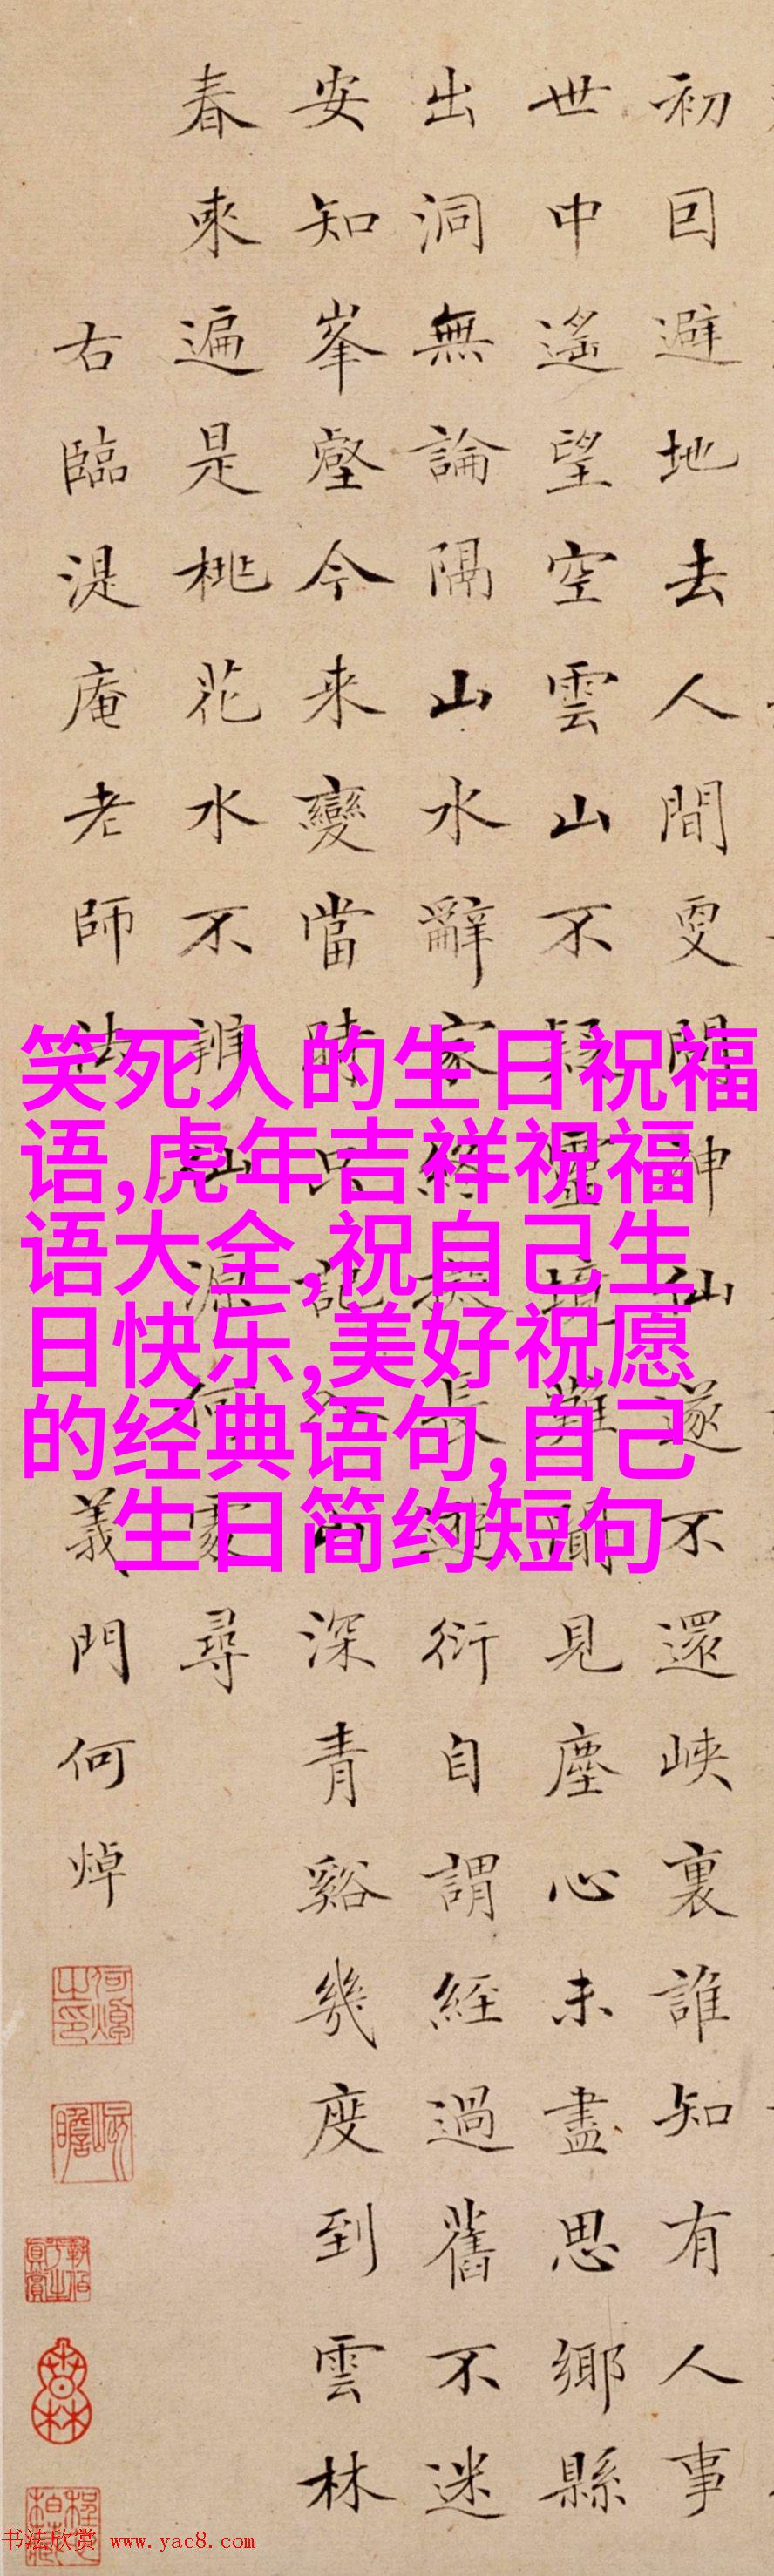 初回避地去人間更聞神仙遂不還峽裏誰知有人事
世中遙望空雲山不疑靈境難聞見塵心未盡思鄉縣
出洞無論隔山水辭家終擬長遊衍自謂經過舊不迷
安知峯壑今来變當時只記入山深青谿幾度到雲林
春來遍是桃花水不辨仙源何處尋
右臨湜庵老師法
義門何焯
笑死人的生日祝福
语,虎年吉祥祝福
语大全,祝自己生
日快乐,美好祝愿
的经典语句,自己
生日简约短句
书法欣赏 www.yac8.com